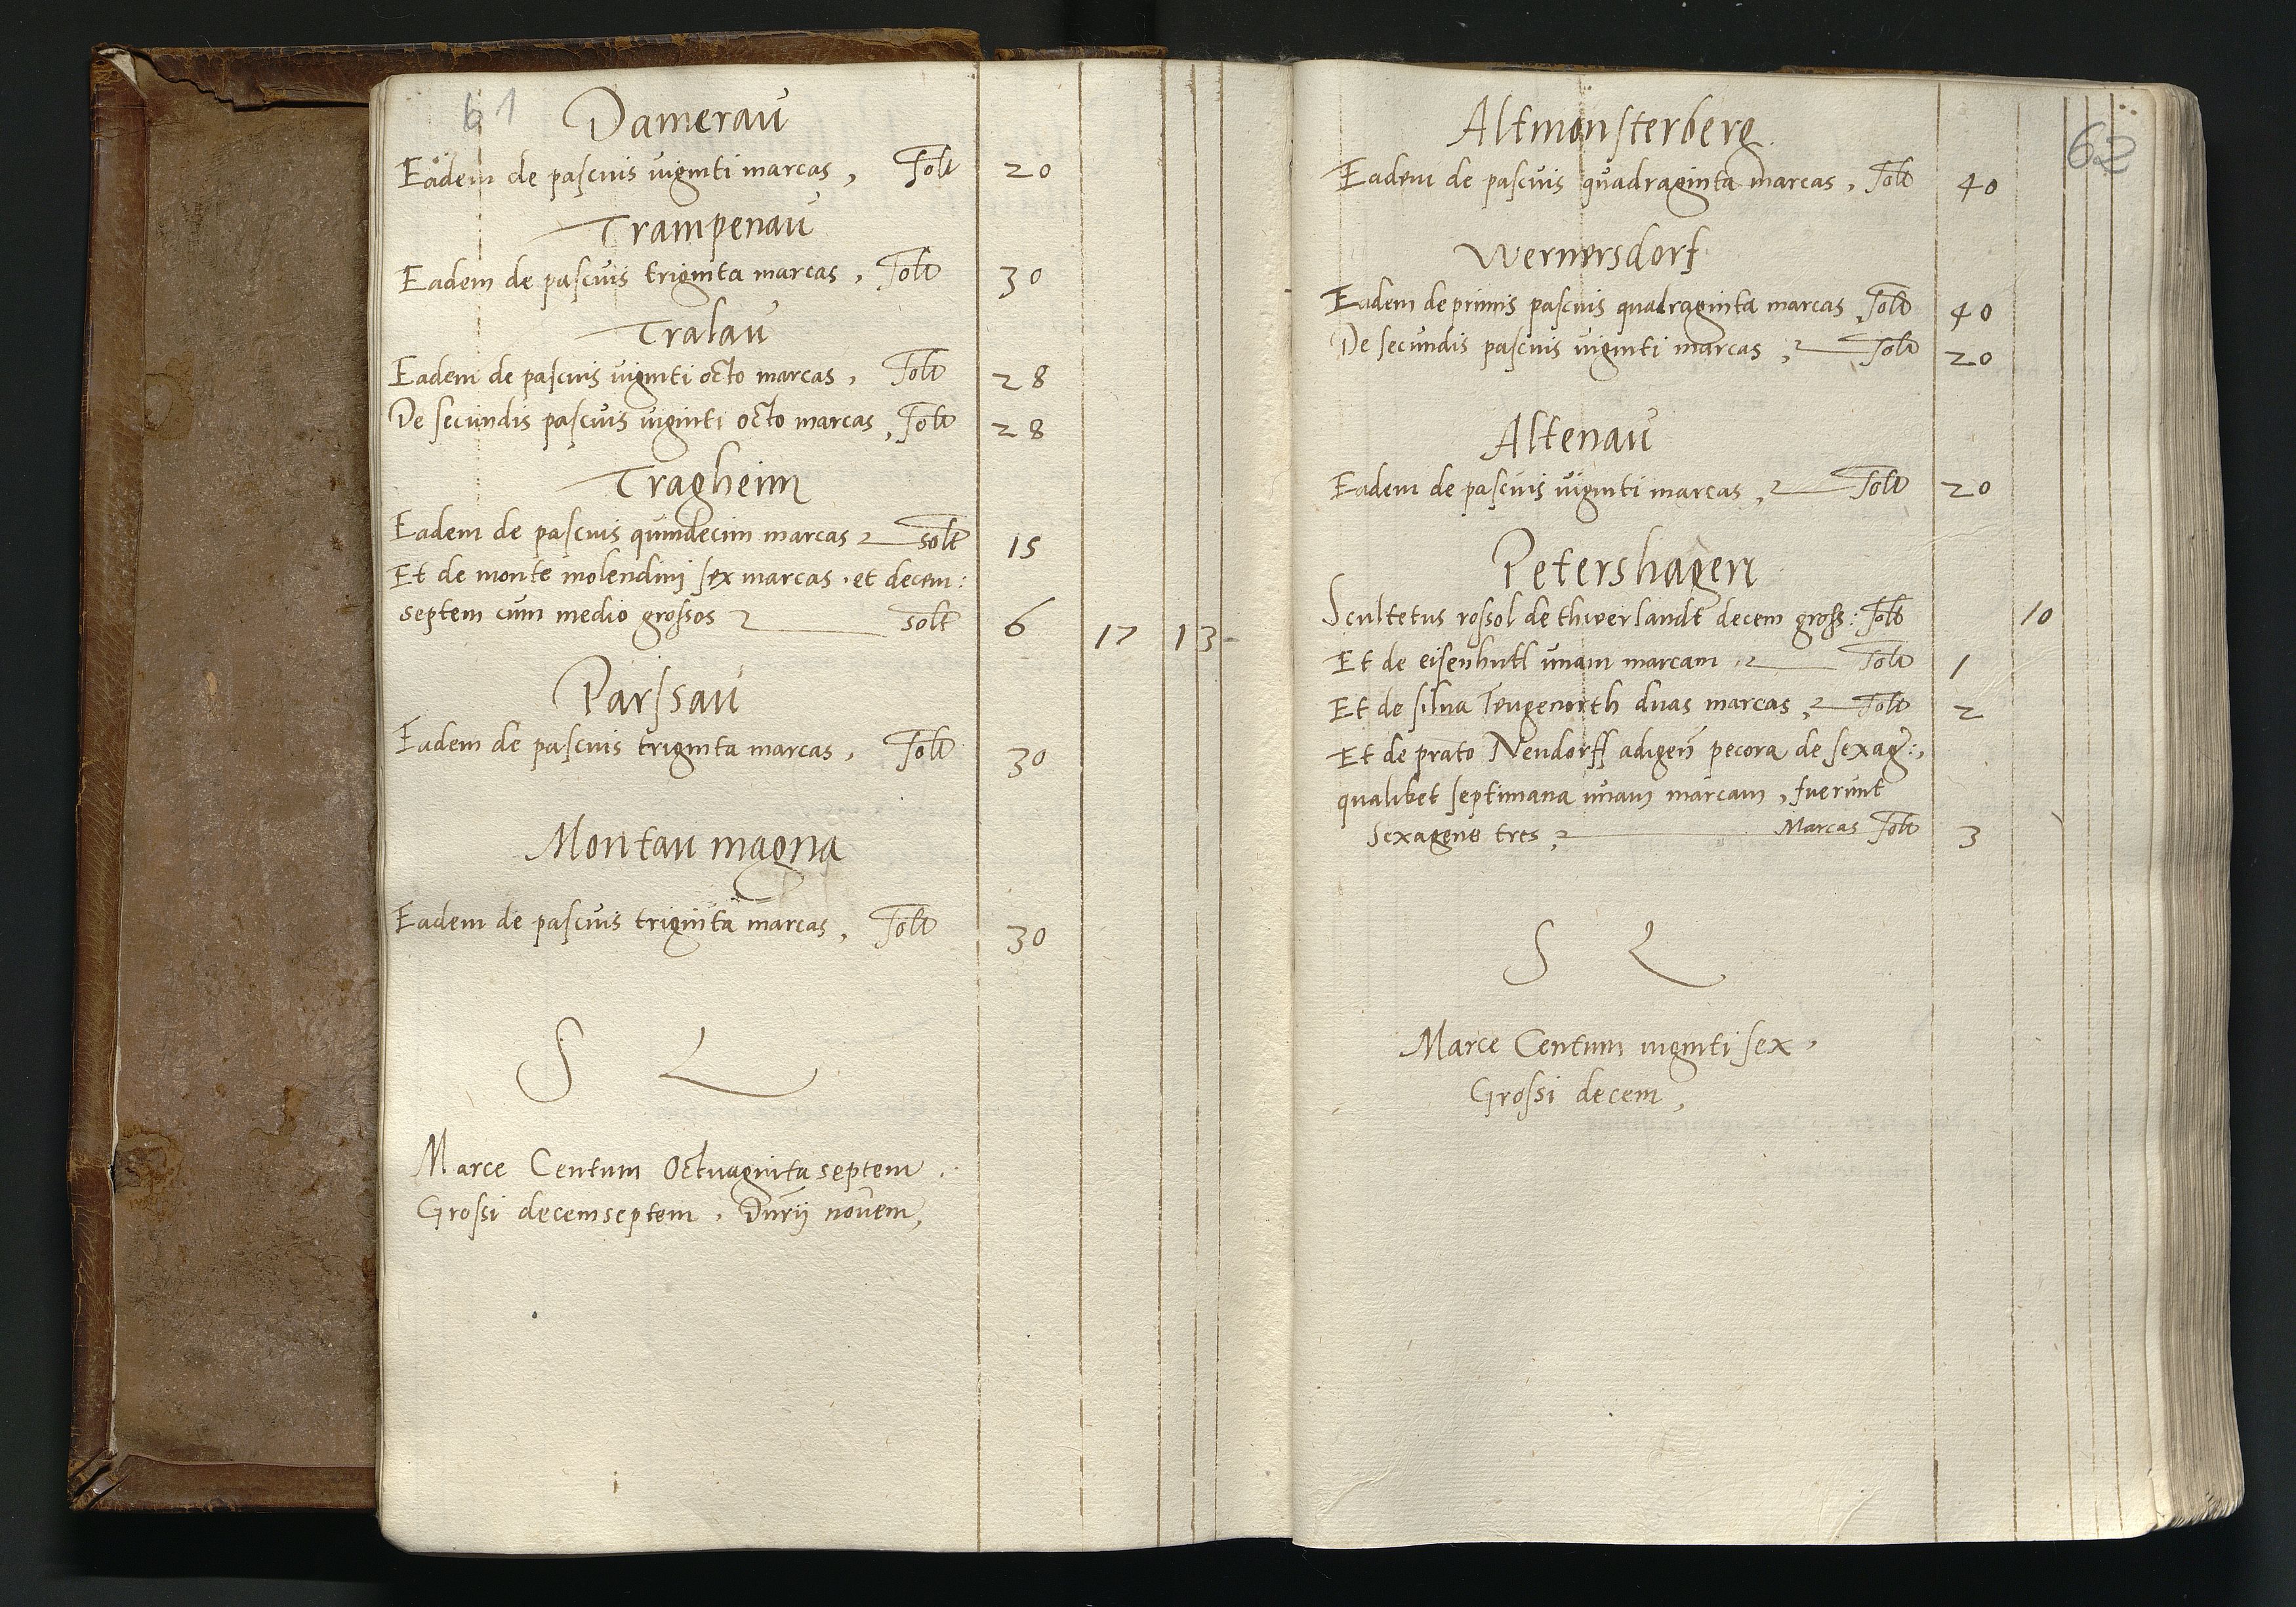 61
Damerau
Eadem de pascuis viginti marcas, Solt 20
Trampenau
Eadem de pascuis triginta marcas, Solt 30
Tralau
Eadem de pascuis viginti octo marcas, Solt 28
De secundis pascuis viginti octo marcas, Solt 28
Tragheim
Eadem de pascuis quindecim marcas solt 15
Et de monte molendini sex marcas. et decem:
septem cum medio grossos solt 6 17 1 3
Parssau
Eadem de pascuis triginta marcas, Solt 30
Montau magna
Eadem de pascuis triginta marcas, Solt 30
S L
Marce Centum Octuaginta septem.
Grossi decemseptem, Dnrij novem,
62
Altmonsterberg
Eadem de pascuis quadraginta marcas, Solt 40
Wernersdorf
Eadem de primis pascuis quadraginta marcas, Solt 40
De secundis pascuis viginti marcas, Solt 20
Altenau
Eadem de pascuis viginti marcas, Solt 20
Petershagen
Scultetus rossol de thwerlandt decem gross: Solt 10
Et de eisenhutl unam marcam, Solt 1
Et de silva Teugenorth duas marcas, Solt 2
Et de prato Nendorff adigen pecora de sexag:,
qualibet septimana unam marcam, fuerunt
Sexagene tres, Marcas Solt 3
S L
Marce Centum viginti sex,
Grossi decem,